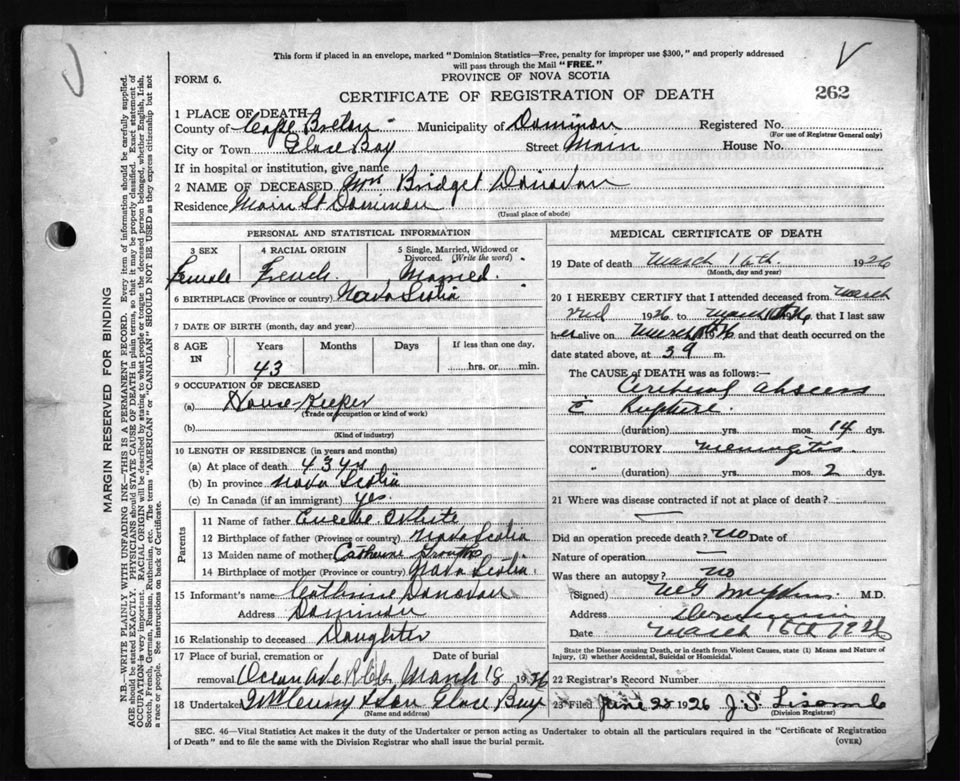 This form if placed in an envelope, marked "Dominion Statistics—Free, penalty for improper use $300," and properly addressed
will pass through the Mail "FREE."
FORM 6.
PROVINCE OF NOVA SCOTIA
CERTIFICATE OF REGISTRATION OF DEATH
262
1 PLACE OF DEATH
County of Cape Breton Municipality of Dominion Registered No.
(For use of Registrar General only)
City or Town Glace Bay Street Main House No.
If in hospital or institution, give name
2 NAME OF DECEASED Mrs Bridget Donovan
Residence Main St Dominion
(Usual place of abode)
PERSONAL AND STATISTICAL INFORMATION
3 SEX 4 RACIAL ORIGIN 5 Single, Married, Widowed or
Divorced. (Write the word)
Female French. Married.
6 BIRTHPLACE (Province or country) Nova Scotia
7 DATE OF BIRTH (month, day and year)
8 AGE IN Years Months Days If less than one day,
43 hrs. or min.
9 OCCUPATION OF DECEASED
(a) House-Keeper
(Trade or occupation or kind of work)
(b)
(Kind of industry)
10 LENGTH OF RESIDENCE (in years and months)
(a) At place of death 43 yrs
(b) In province Nova Scotia
(c) In Canada (if an immigrant) yes.
Parents
11 Name of father White
12 Birthplace of father (Province or country) Nova Scotia
13 Maiden name of mother Catherine
14 Birthplace of mother (Province or country) Nova Scotia
15 Informant's name Catherine Donovan
Address Dominion
16 Relationship to deceased Daughter
17 Place of burial, cremation or Date of burial
removal March 18 1926
18 Undertaker & Son Glace Bay
(Name and address)
MEDICAL CERTIFICATE OF DEATH
19 Date of death March 16th. 1926
(Month, day and year)
20 I HEREBY CERTIFY that I attended deceased from March
2nd 1926 to March 1926, that I last saw
her alive on March 1926 and that death occurred on the
date stated above, at 3 m.
The CAUSE of DEATH was as follows:—
Cerebral abscess
Rupture.
(duration) yrs. mos. 14 dys.
CONTRIBUTORY Meningitis.
" (duration) yrs. mos. 2 dys.
21 Where was disease contracted if not at place of death?
Did an operation precede death? No Date of
Nature of operation —
Was there an autopsy? No
(Signed) M.D.
Address Dominion
Date March 16th 1926
State the Disease causing Death, or in death from Violent Causes, state (1) Means and Nature of
Injury, (2) whether Accidental, Suicidal or Homicidal.
22 Registrar's Record Number
23 Filed June 28 1926 J. S.
(Division Registrar)
SEC. 46—Vital Statistics Act makes it the duty of the Undertaker or person acting as Undertaker to obtain all the particulars required in the "Certificate of Registration
of Death" and to file the same with the Division Registrar who shall issue the burial permit. (OVER)
MARGIN RESERVED FOR BINDING
N.B.—WRITE PLAINLY WITH UNFADING INK—THIS IS A PERMANENT RECORD. Every item of information should be carefully supplied.
AGE should be stated EXACTLY. PHYSICIANS should STATE CAUSE OF DEATH in plain terms, so that it may be properly classified. Exact statement of
OCCUPATION is very important. RACIAL ORIGIN will be described by stating to what people or tongue the deceased person belonged, whether English, Irish,
Scotch, French, German, Russian, Ruthenian, etc. The terms "AMERICAN" or "CANADIAN" SHOULD NOT BE USED as they express citizenship but not
a race or people. See instructions on back of Certificate.